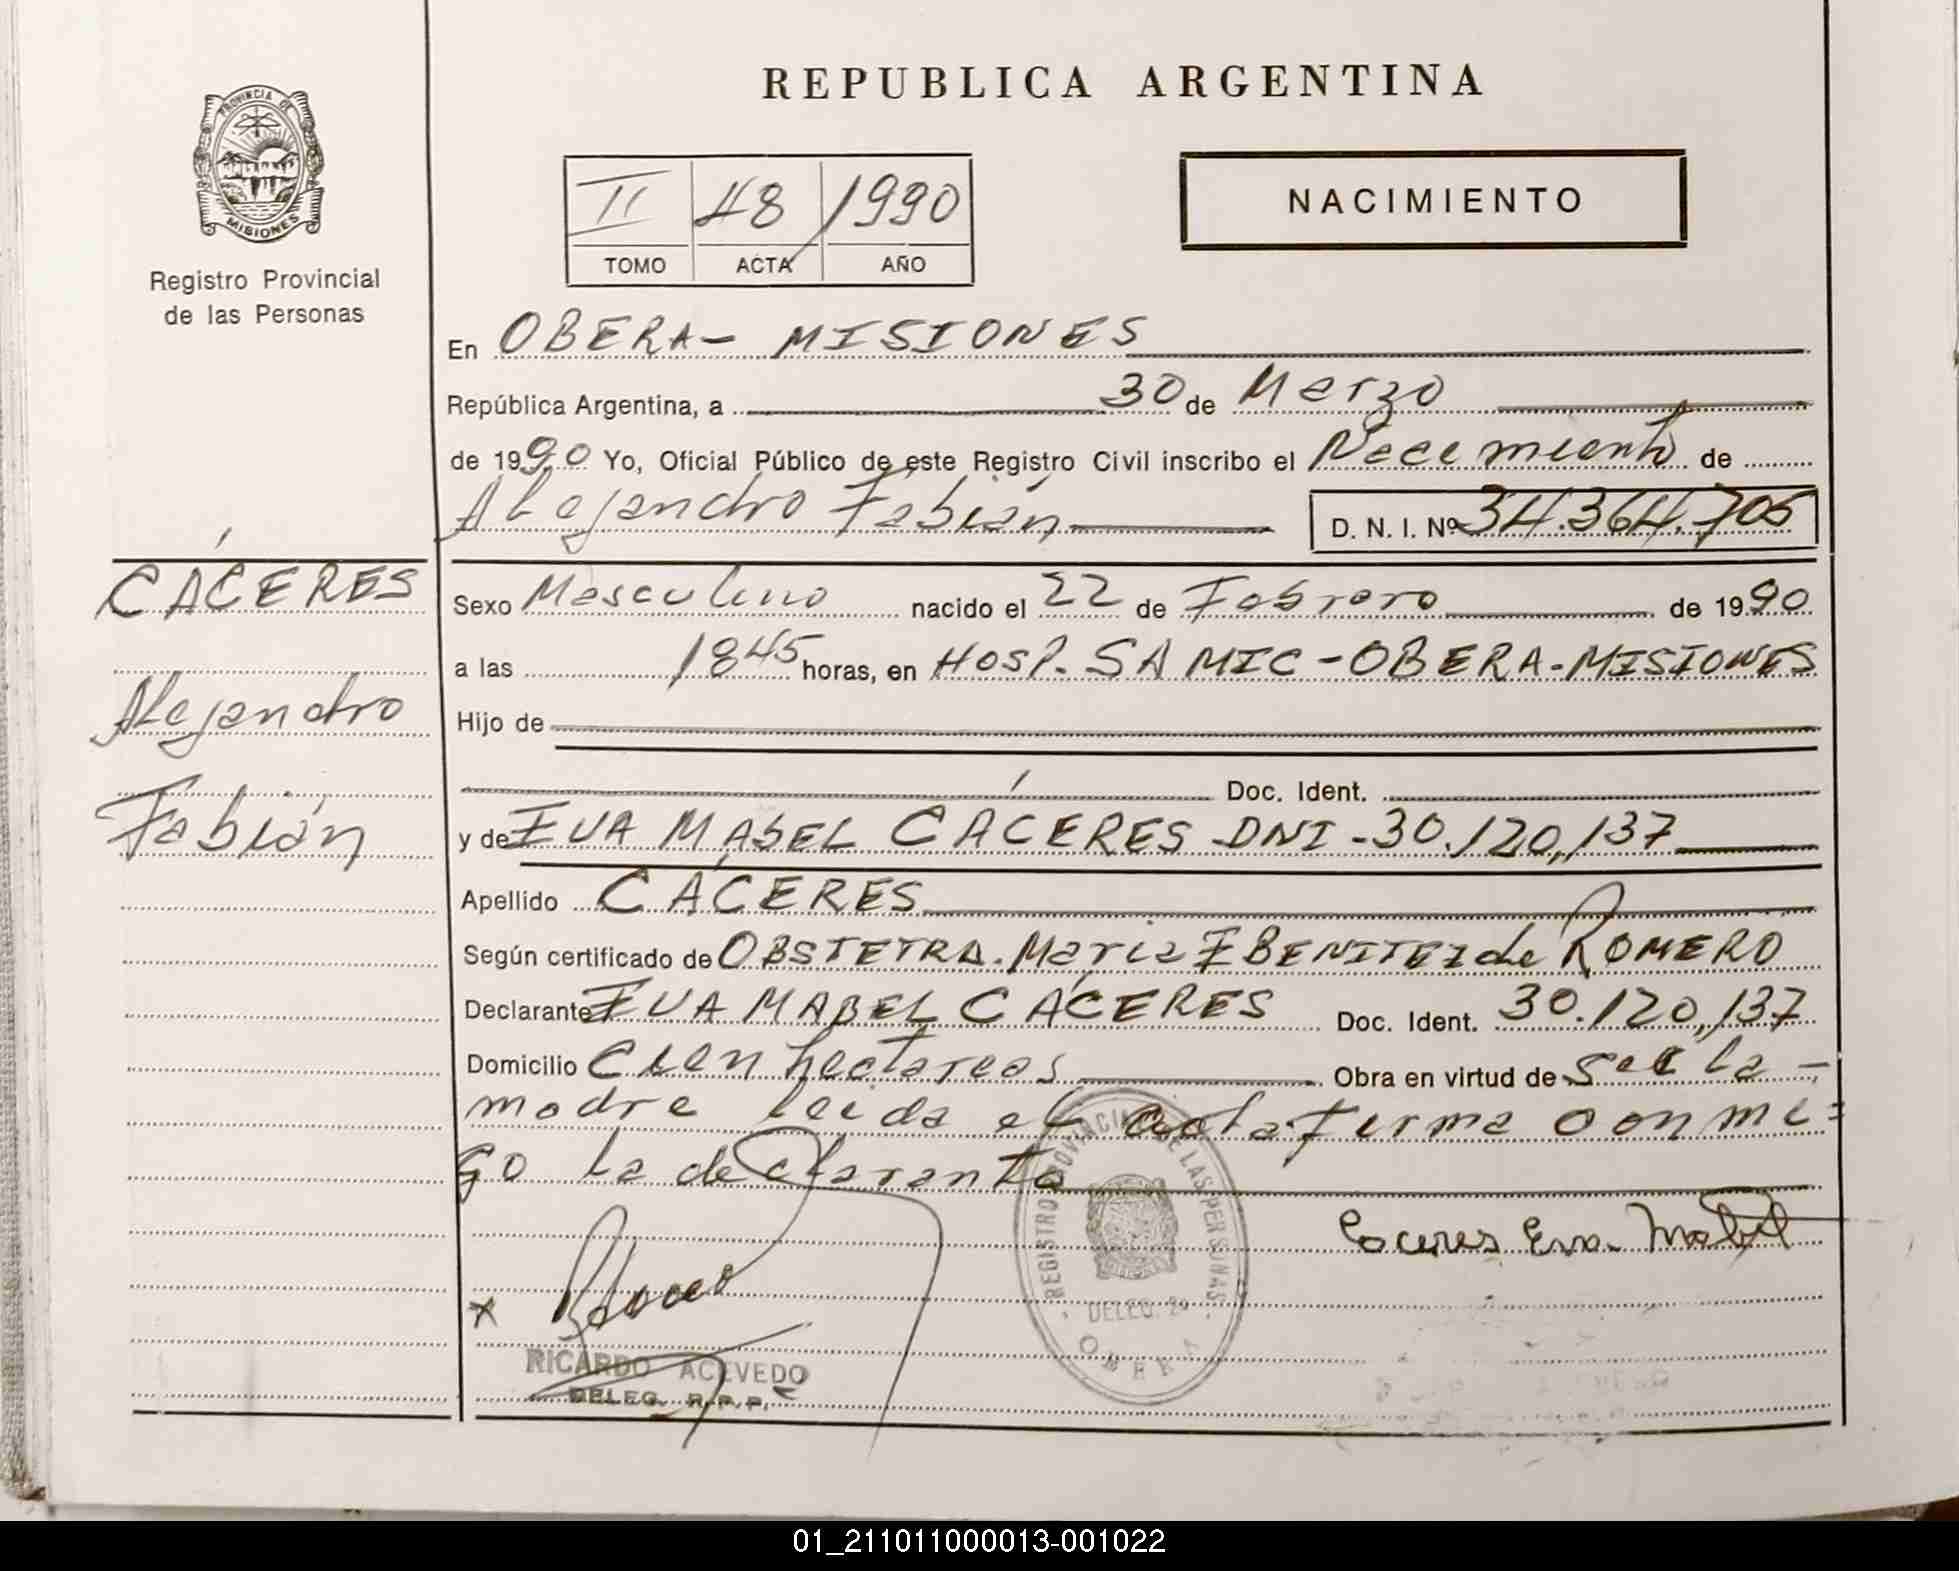 REPUBLICA ARGENTINA
PROVINCIA DE
MISIONES
Registro Provincial
de las Personas
II 48 1990
TOMO ACTA AÑO
NACIMIENTO
En OBERA - MISIONES
República Argentina, a 30 de Marzo
de 1990 Yo, Oficial Público de este Registro Civil inscribo el Nacimiento de
Alejandro Fabián D. N. I. Nº 34.364.705
CÁCERES
Alejandro
Fabián
Sexo Masculino nacido el 22 de Febrero de 1990
a las 1845 horas, en HOSP. SAMIC - OBERA - MISIONES
Hijo de
Doc. Ident.
y de EVA MABEL CÁCERES DNI - 30.120,137
Apellido CÁCERES
Según certificado de OBSTETRA. María E BENITEZ de ROMERO
Declarante EVA MABEL CÁCERES Doc. Ident. 30.120,137
Domicilio Cien hectareas Obra en virtud de ser la -
madre leida el acta firma conmi=
go la declarante
REGISTRO PROVINCIAL DE LAS PERSONAS
DELEG. 
OBERA
Caceres Eva Mabel
RICARDO ACEVEDO
DELEG. R.P.P.
01_211011000013-001022